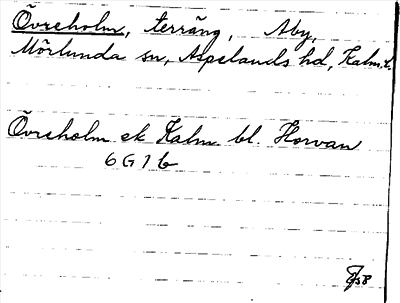 Övreholm, terräng, Aby,
Mörlunda sn, Aspelands hd, Kalm. l.
Övreholm ek Kalm. bl. Horvan
6 G 1 b